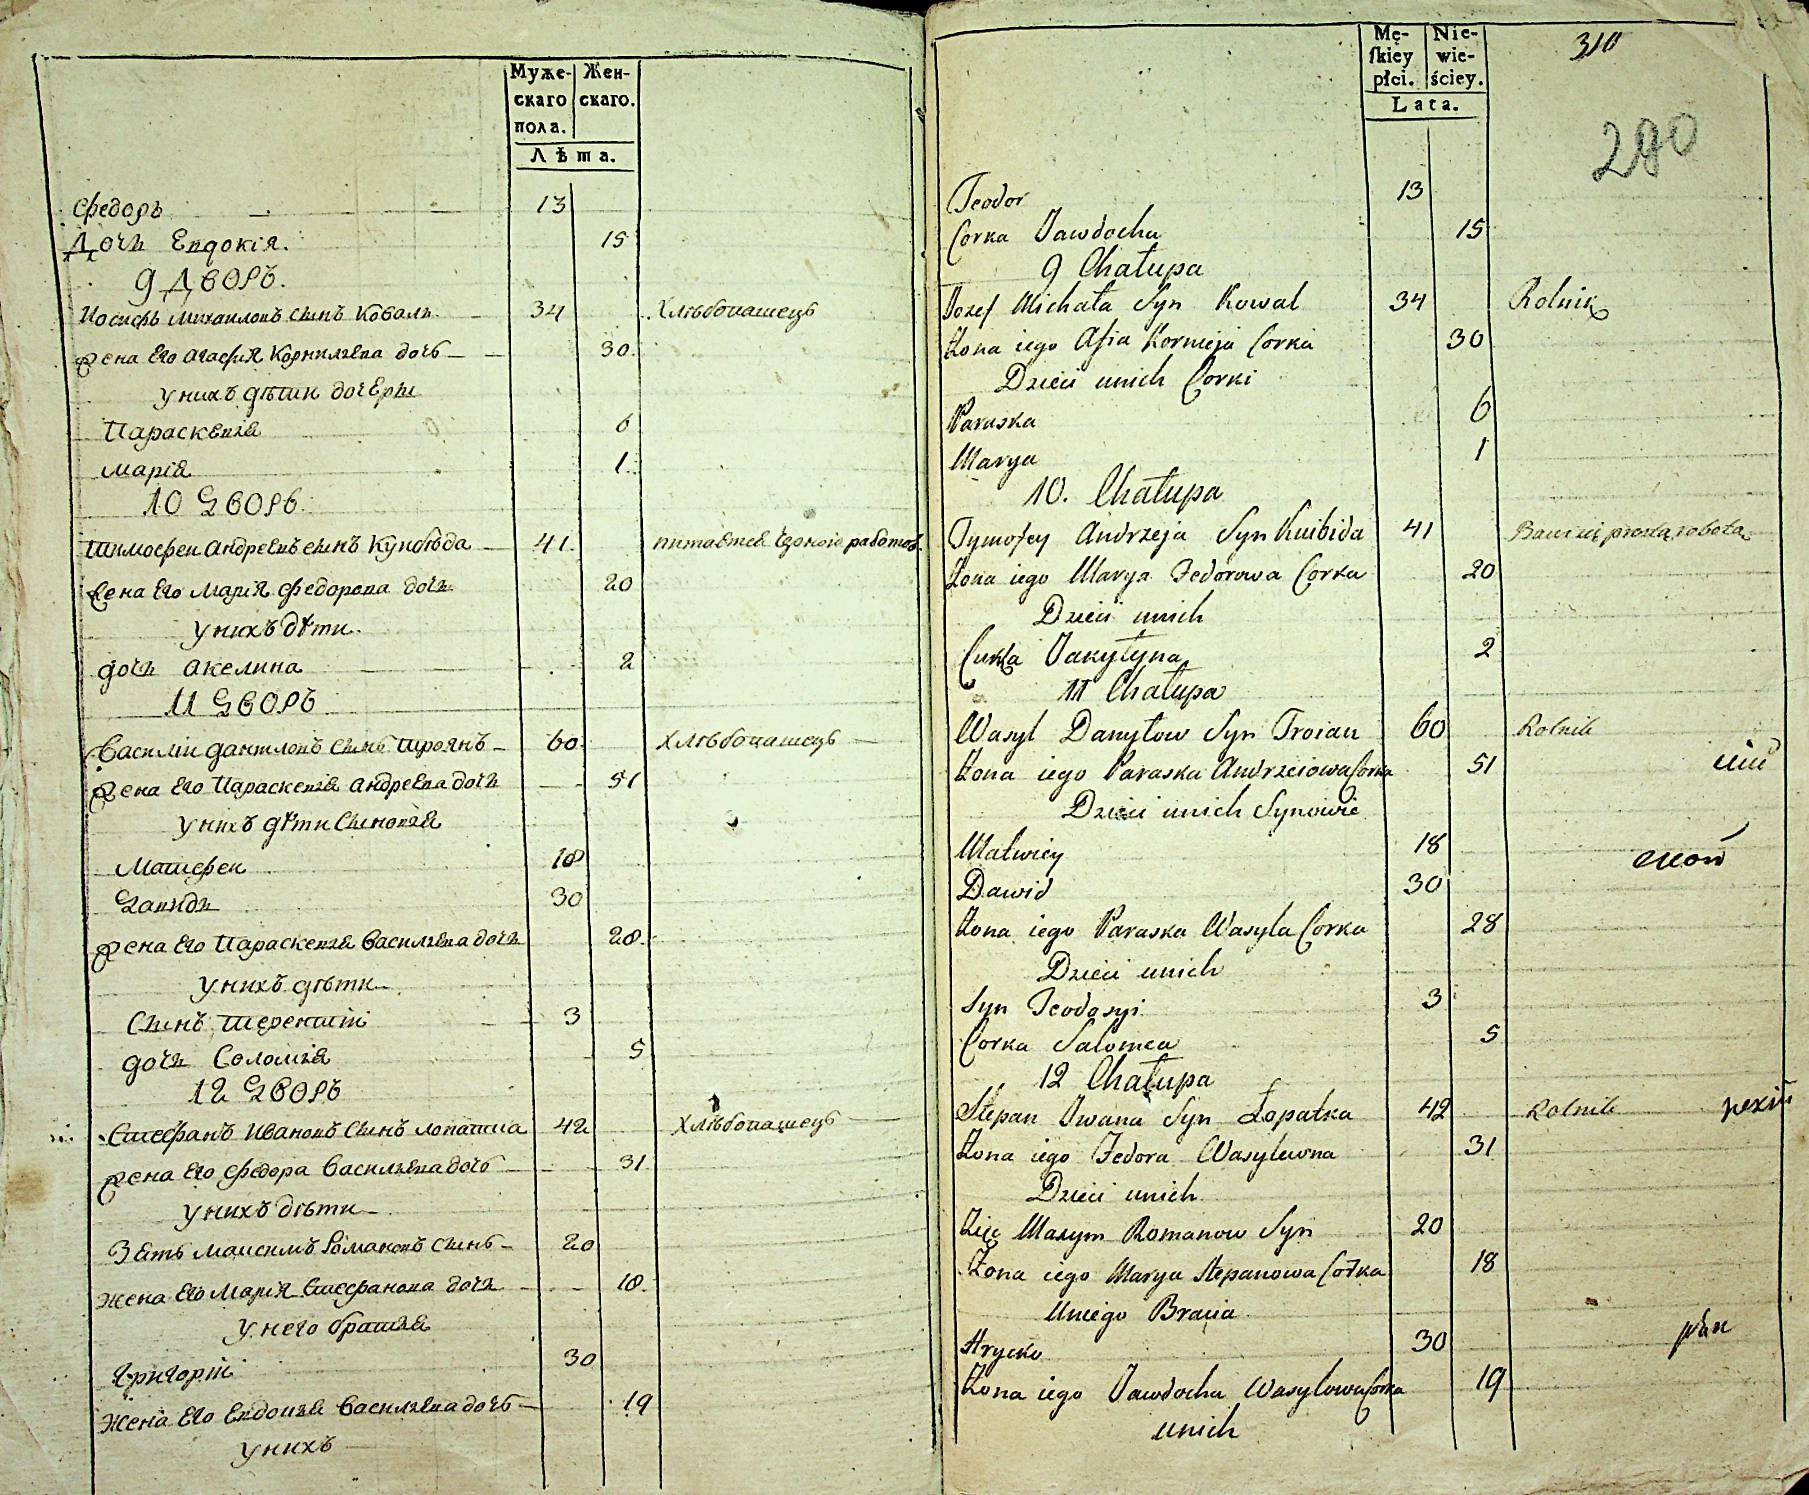 Муже-
скаго
пола.
Жен-
скаго.
Лѣта.
Федоръ 13
Дочь Евдокія. 15
9 Дворъ.
Иосифъ Михаиловъ сынъ Коваль 34 Хлѣбопашецъ
Жена его Агафия Корнилиева дочь 30
У нихъ дѣти дочери
Параскевия 6
Марія 1
10 Дворъ
Тимофеи Андреевъ сынъ Куибѣда 41 питается черною работою
Жена его Марія Федорова дочь 20
У нихъ дѣти
дочь Акелина 2
11 Дворъ
Василіи Даниловъ сынъ Троянъ 60 Хлѣбопашецъ
Жена его Параскевия Андреева дочь 51
У нихъ дѣти сыновья
Матвеи 18
Давидъ 30
Жена его Параскевия Василиева дочь 28
У нихъ дѣти
Сынъ Терентіи 3
дочь Соломия 5
12 Дворъ
Стефанъ Ивановъ сынъ Лопатка 42 Хлѣбопашецъ
Жена его Федора Василиева дочь 31
У нихъ дѣти
Зять Максимъ Романовъ сынъ 20
Жена его Марія Стефанова дочь 18
У него братия
Григоріи 30
Жена его Евдокия Василиева дочь 19
У нихъ
Mę-
skiey
płci.
Nie-
wie-
ściey.
Lata.
310
280
Teodor 13
Corka Jawdocha 15
9 Chałupa
Jozef Michała Syn Kowal 34 Rolnik
Żona iego Afia Kornieja Corka 30
Dzieci unich Corki
Paraska 6
Marya 1
10. Chałupa
Tymofey Andrzeja Syn Kuibida 41 Bawi się prostą robotą
Żona iego Marya Fedorowa Corka 20
Dzieci unich
Jakylyna 2
11 Chałupa
Wasyl Danyłow Syn Troian 60 Rolnik
Żona iego Paraska Andrzeiowa Corka 51
Dzieci unich Synowie
Matwiey 18
Dawid 30
Żona iego Paraska Wasyla Corka 28
Dzieci unich
Syn Teodosyi 3
Corka Salomea 5
12 Chałupa
Stepan Iwana Syn Łopatka 42 Rolnik
Żona iego Fedora Wasylewna 31
Dzieci unich
Zięc Maxym Romanow Syn 20
Żona iego Marya Stepanowa Corka 18
Uniego Bracia
Hrycko 30
Żona iego Jawdocha Wasylowa Corka 19
unich